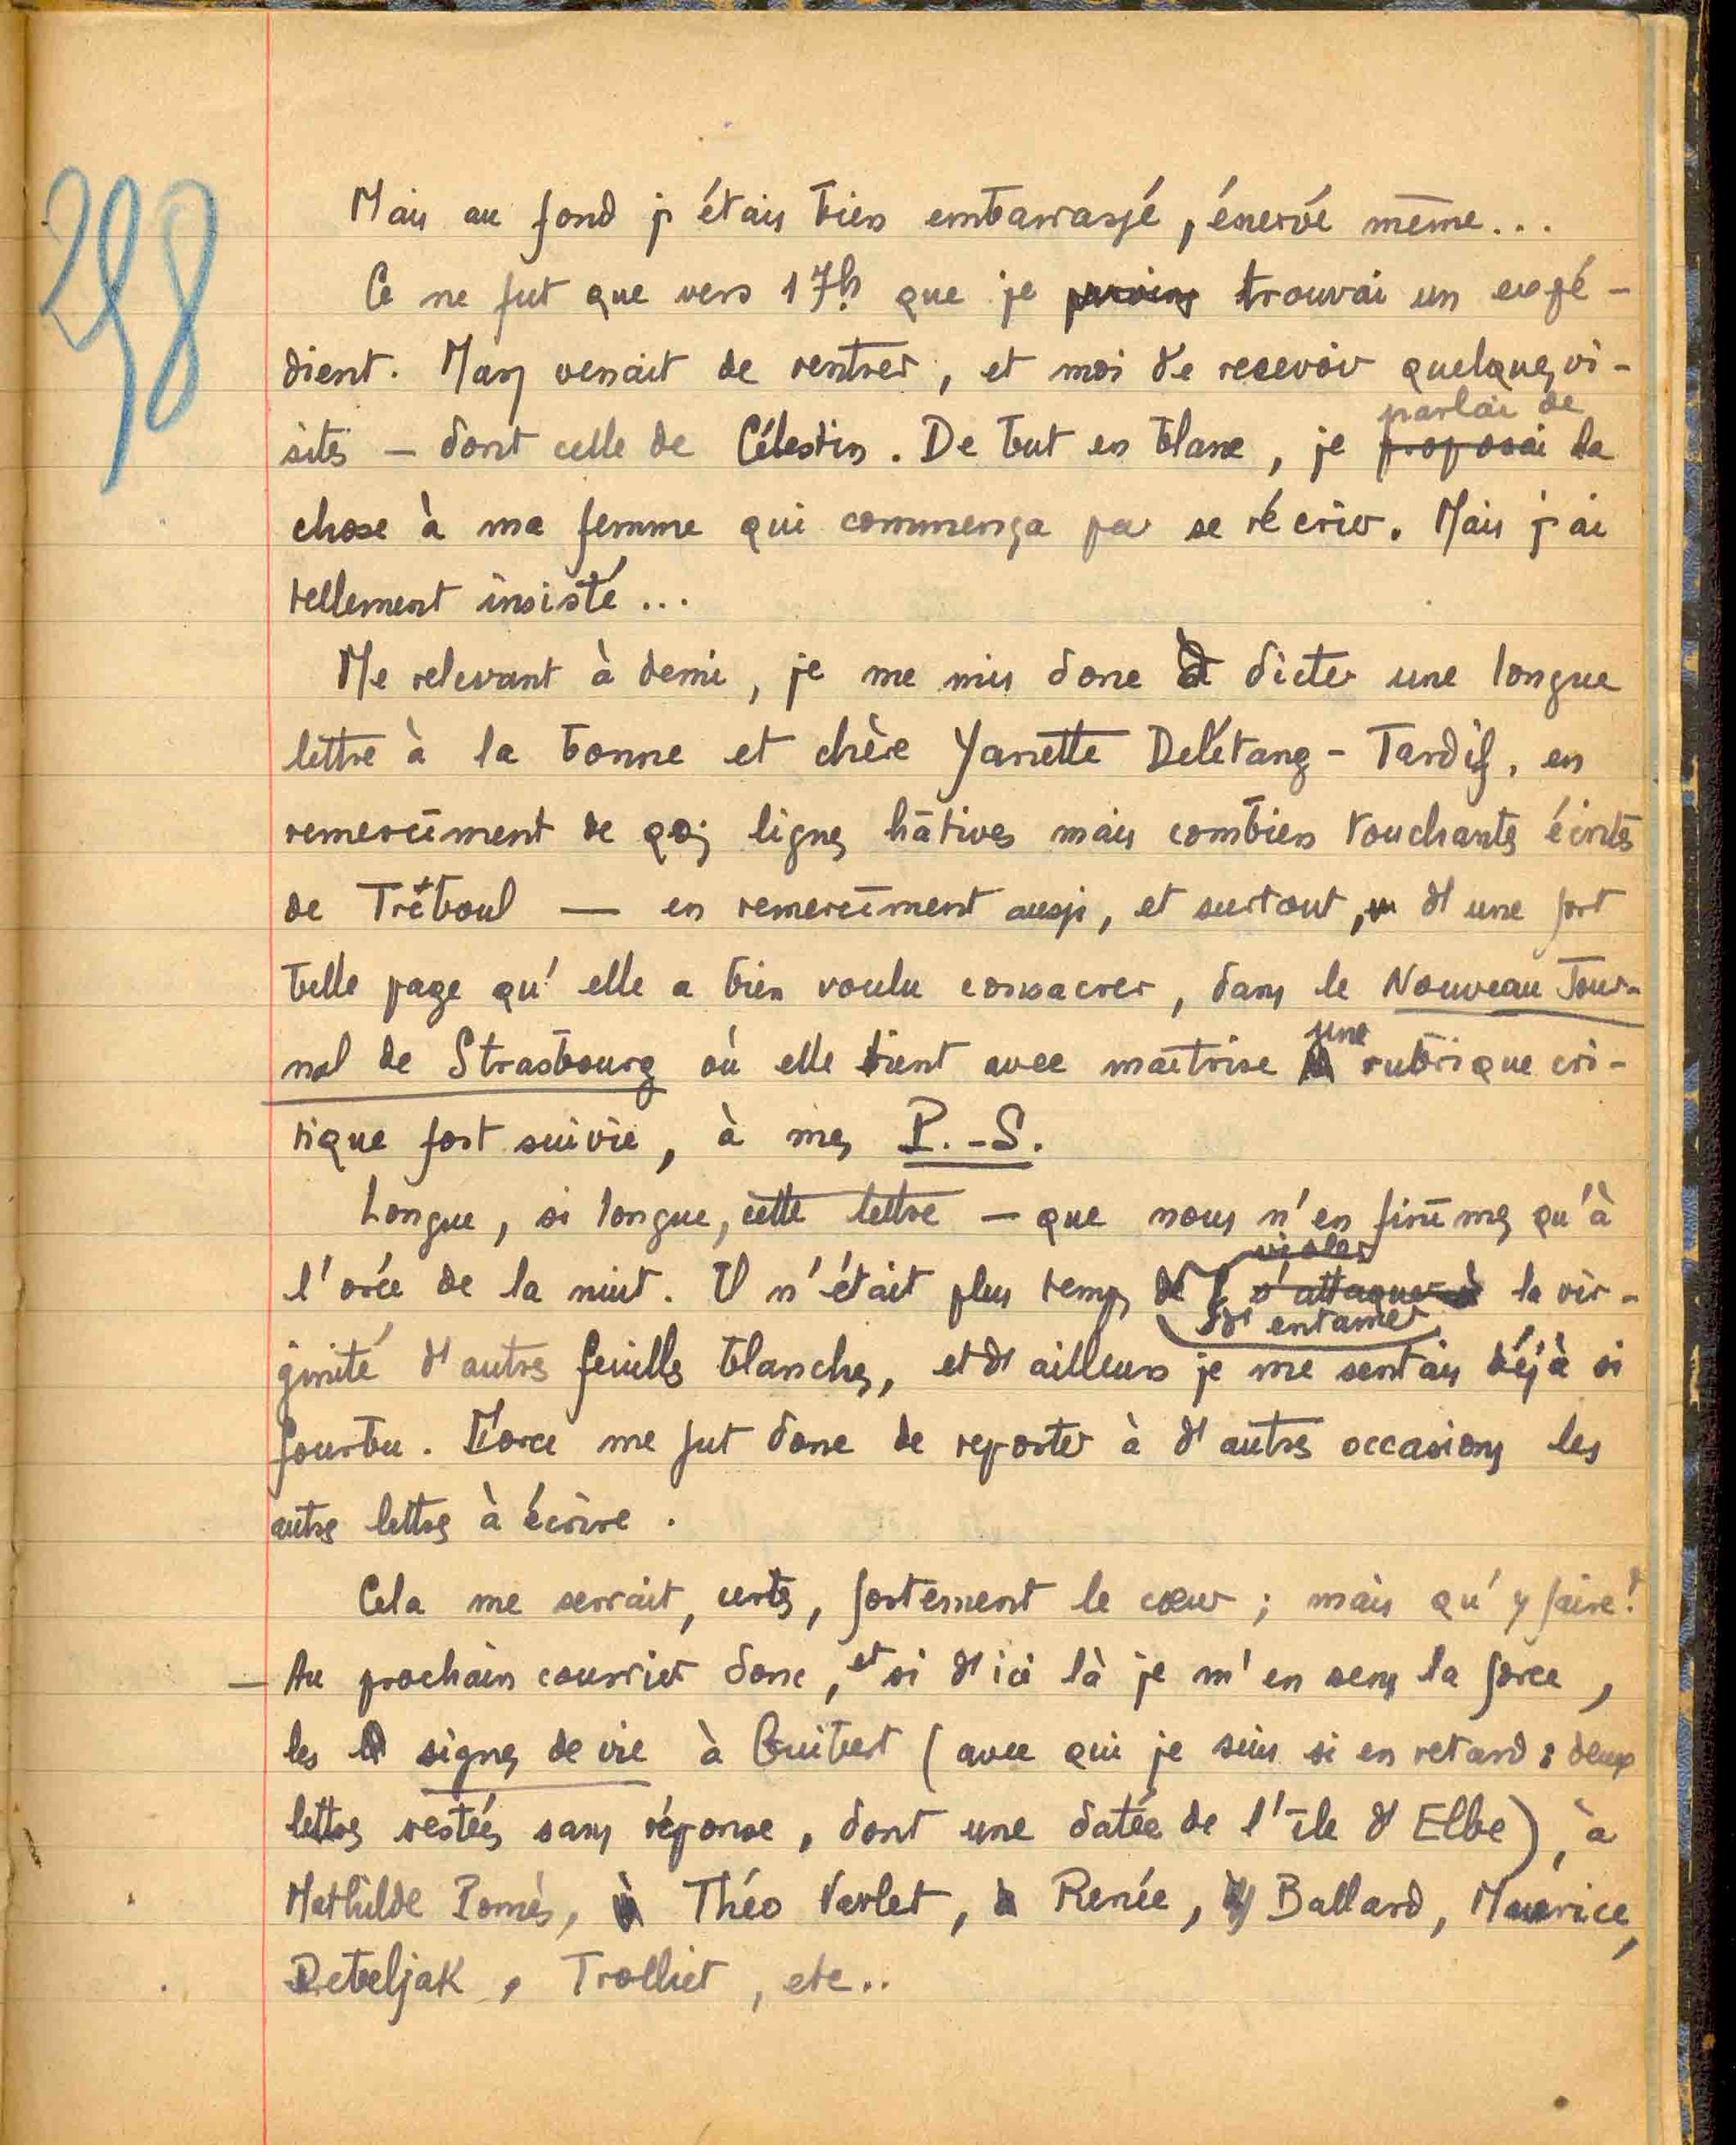 298
Mais au fond j'étais bien embarrassé, énervé même...
Ce ne fut que vers 17h que je trouvai un expé-
dient. Mary venait de rentrer, et moi de recevoir quelques vi-
sites — dont celle de Célestin. De but en blanc, je proposai parlai de la
chose à ma femme qui commença par se récrier. Mais j'ai
tellement insisté...
Me relevant à demi, je me mis donc à dicter une longue
lettre à la bonne et chère Yanette Delétang-Tardif, en
remercîment de qqs lignes hâtives mais combien touchantes écrites
de Tréboul — en remercîment aussi, et surtout, d'une fort
belle page qu'elle a bien voulu consacrer, dans le Nouveau Jour-
nal de Strasbourg où elle tient avec maîtrise une rubrique cri-
tique fort suivie, à mes P.-S.
Longue, si longue, cette lettre — que nous n'en finîmes qu'à
l'orée de la nuit. Il n'était plus temps de s'attaquer à violer d'entamer la vir-
ginité d'autres feuilles blanches, et d'ailleurs je me sentais déjà si
fourbu. Force me fut donc de reporter à d'autres occasions les
autres lettres à écrire.
Cela me serrait, certes, fortement le cœur ; mais qu'y faire !
— Au prochain courrier donc, et si d'ici là je m'en sens la force,
les signes de vie à Guibert (avec qui je suis si en retard : deux
lettres restées sans réponse, dont une datée de l'île d'Elbe), à
Mathilde Pomès, à Théo Varlet, à Renée, Ballard, Maurice,
Debeljak, Trolliet, etc..